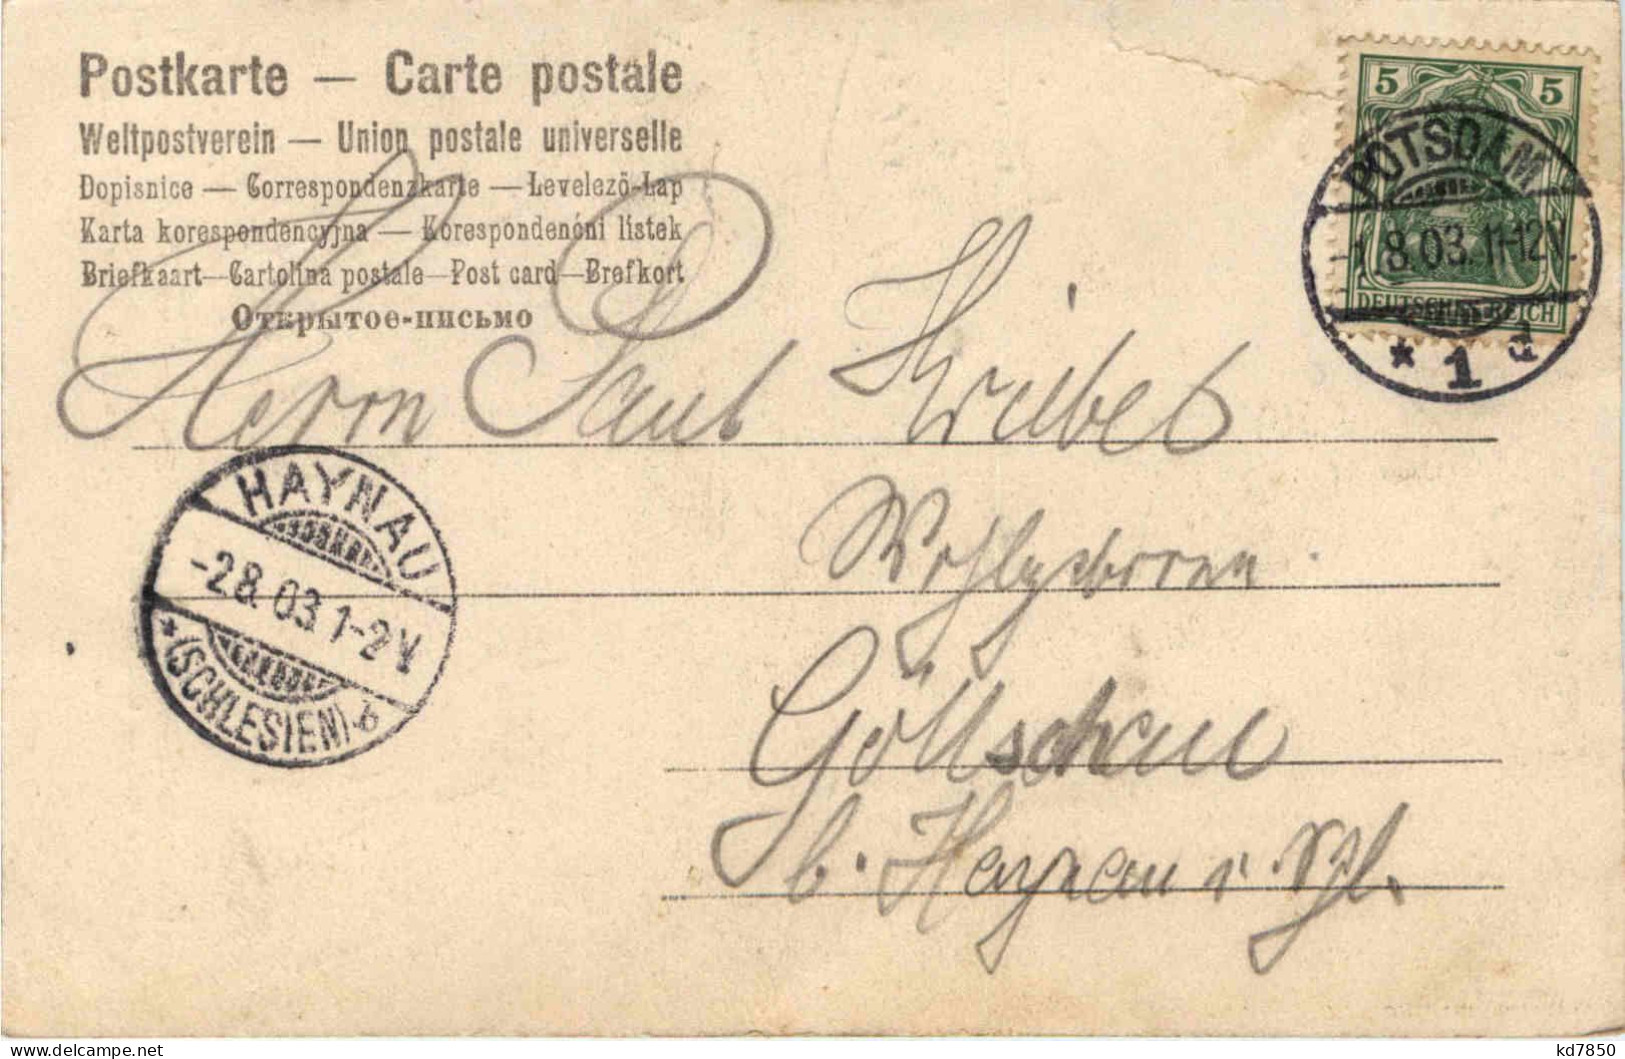 Postkarte — Carte postale
Weltpostverein — Union postale universelle
Dopisnice — Correspondenzkarte — Levelező-Lap
Karta korespondencyjna — Korespondenóni lístek
Briefkaart—Cartolina postale—Post card—Brefkort
Открытое-письмо
5 5
POTSDAM
1.8.03.11-12V.
DEUTSCHES REICH
* 1 d
Herrn Paul
HAYNAU
-2.8.03.1-2V
*(SCHLESIEN)-b
Wohlgeboren
Göllschau
b. Haynau i. Schl.
kd7850